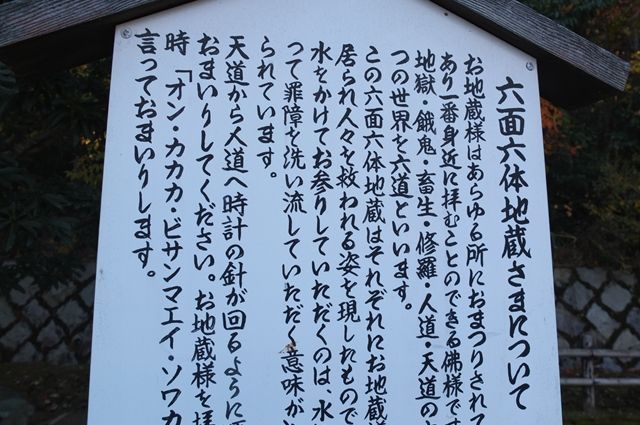 六面六体地蔵さまについて
お地蔵様はあらゆる所におまつりされて
あり一番身近に拝むことのできる佛様です
地獄・餓鬼・畜生・修羅・人道・天道の六
つの世界を六道といいます。
この六面六体地蔵はそれぞれにお地蔵様
居られ人々を救われる姿を現したもので
水をかけてお参りしていただくのは、水
つて罪障を洗い流していただく意味が
られています。
天道から人道へ時計の針が回るように
おまいりしてください。お地蔵様を拝
時「オン・カカカ・ビサンマエイ・ソワカ
言っておまいりします。